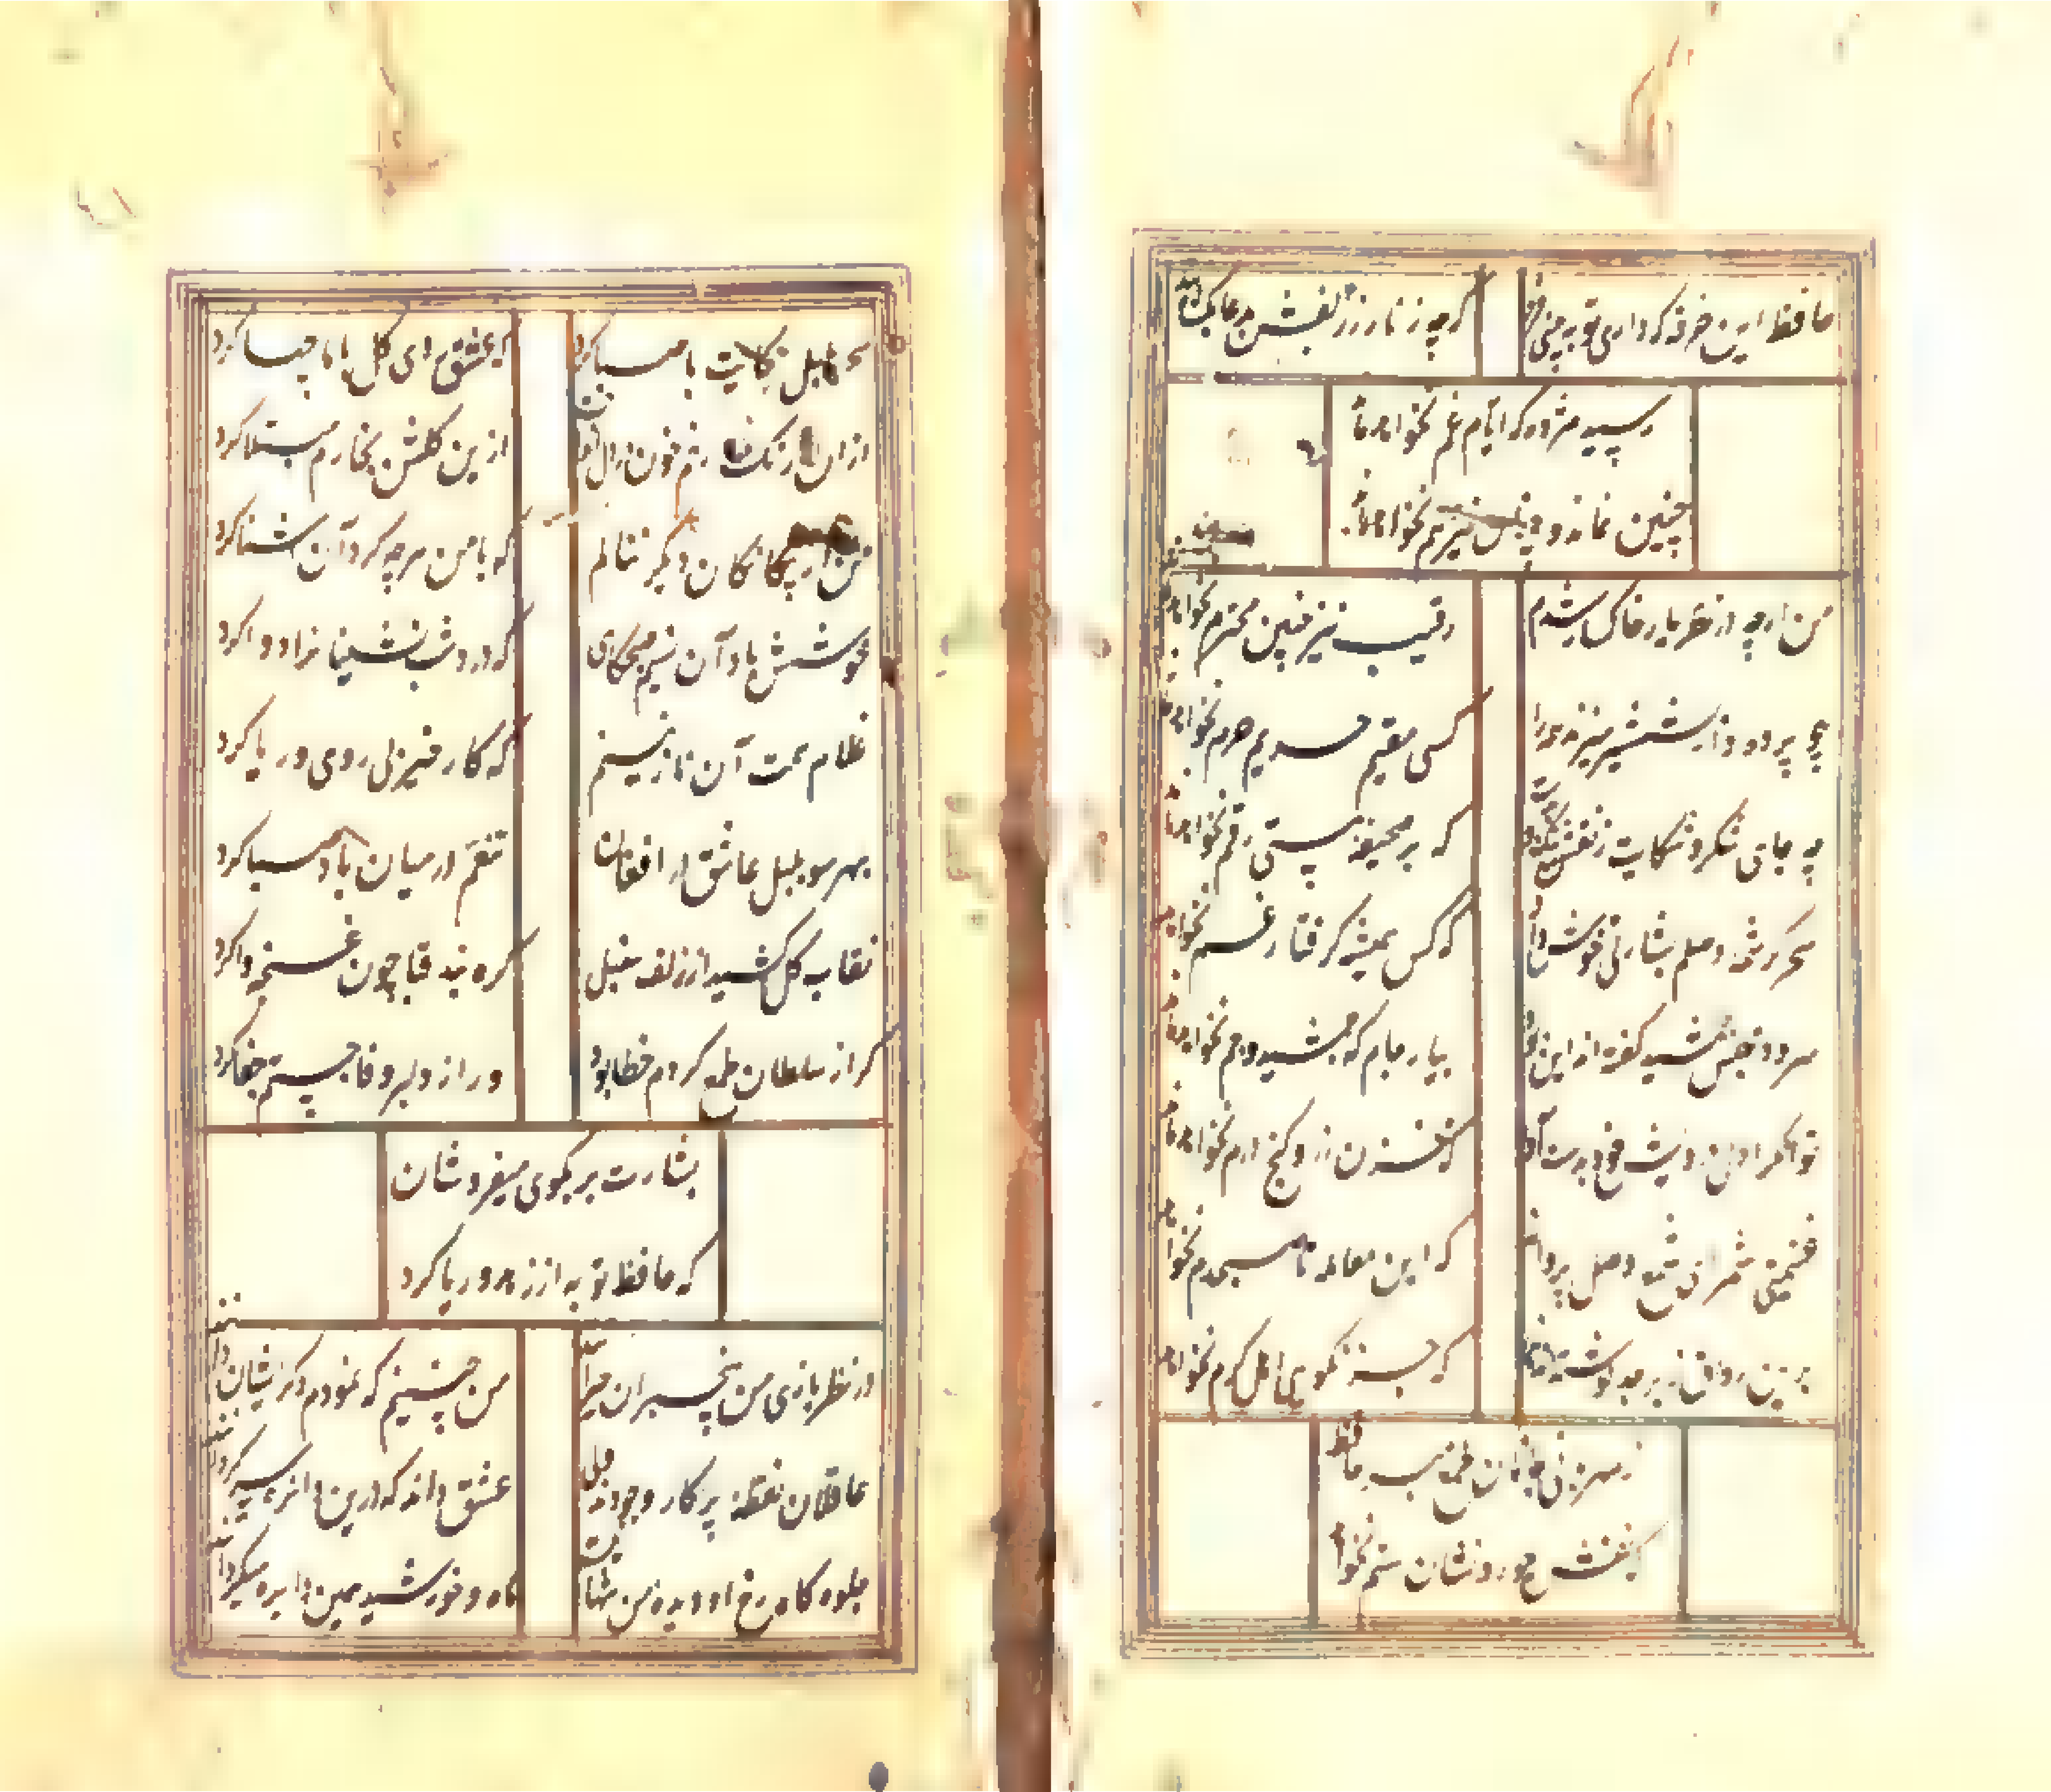 حافظ این خرقه که داری تو به بینی فردا که چه زنار ز زلفش بدغا بکشایند
رسید مژده که ایام غم نخواهد ماند
چنین نماند و چنین نیز هم نخواهد ماند
من ار چه در نظر یار خاکسار شدم رقیب نیز چنین محترم نخواهد ماند
چو پرده دار بشمشیر میزند همه را کسی مقیم حریم حرم نخواهد ماند
چه جای شکر و شکایت ز نقش که بر صحیفه هستی رقم نخواهد ماند
سحر کرشمه وصلم بشارتی خوش داد که کس همیشه گرفتار غم نخواهد ماند
سرود مجلس جمشید گفته‌اند این بود بیار جام که جمشید و جم نخواهد ماند
توانگرا دل درویش خود بدست آور که مخزن زر و گنج درم نخواهد ماند
غنیمتی شمر ای شمع وصل پروانه که این معامله تا صبحدم نخواهد ماند
برین رواق زبرجد نوشته‌اند که جز نکویی اهل کرم نخواهد ماند
ز مهربانی جانان طمع مبر حافظ
که نقش جور و نشان ستم نخواهد
سحر بلبل حکایت با صبا کرد که عشق روی گل با ما چها کرد
از ان رنگ رخم خون در دل انداخت ازین گلشن بخارم مبتلا کرد
من از بیگانگان دیگر ننالم که با من هر چه کرد آن آشنا کرد
خوشش باد آن نسیم صبحگاهی که درد شب نشینانرا دوا کرد
غلام همت آن نازنینم که کار خیر بی روی و ریا کرد
بهر سو بلبل عاشق در افغان تنعم در میان باد صبا کرد
نقاب گل کشید و زلف سنبل گره بند قبای غنچه وا کرد
گر از سلطان طمع کردم خطا بود ور از دلبر وفا جستم جفا کرد
بشارت بر بکوی میفروشان
که حافظ توبه از زهد و ریا کرد
در نظر بازی من بیخبران حیرانند من چنینم که نمودم دگر ایشان دانند
عاقلان نقطه پرگار وجودند ولی عشق داند که درین دایره سرگردانند
جلوه گاه رخ او دیده من تنها نیست ماه و خورشید همین دایره میگردانند